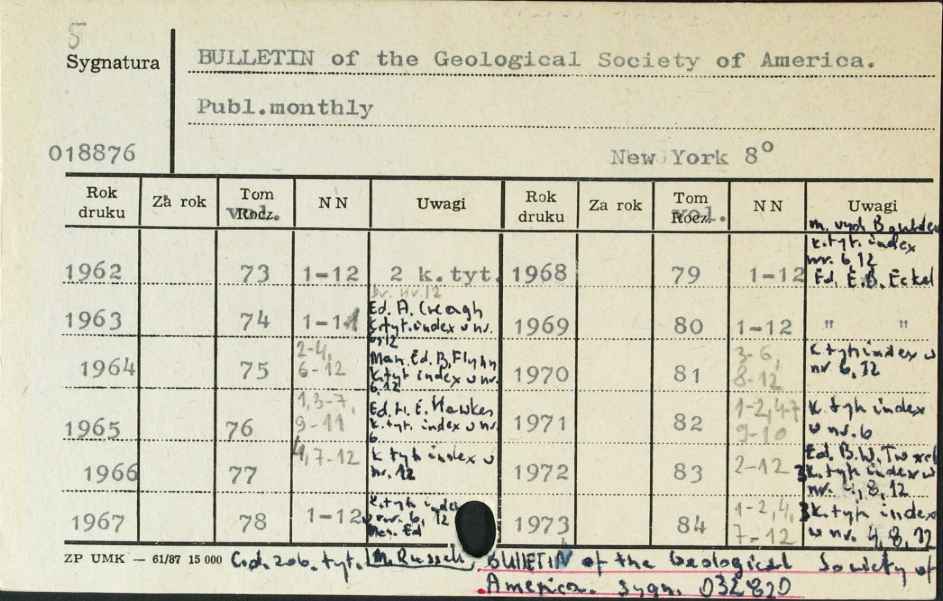 5
Sygnatura
BULLETIN of the Geological Society of America.
Publ.monthly
018876
New York 8°
Rok druku Za rok Tom Rocz. vol. NN Uwagi Rok druku Za rok Tom Rocz. vol. NN Uwagi
1962 73 1-12 2 k.tyt. 1968 79 1-12 k.tyt. index nr. 6, 12 Ed. E.B. Eckel
1963 74 1-11 Ed. A. Creagh k.tyt. index w nr. 6, 12 1969 80 1-12 " "
1964 75 2-4, 6-12 Man. Ed. B. Flynn k.tyt index w nr. 6, 12 1970 81 3-6, 8-12 k tyt index w nr 6, 12
1965 76 1,3-7, 9-11 Ed. H. E. Hawkes k.tyt. index w nr. 6 1971 82 1-2,4-7 9-10 k.tyt index w nr. 6
1966 77 4,7-12 k tyt index w nr. 12 1972 83 2-12 Ed. B.W. 3k.tyt index w nr. 4, 8, 12
1967 78 1-12 k.tyt index w nr. 6, 12 Man. Ed 1973 84 1-2,4, 7-12 3k.tyt index w nr. 4, 8, 12
ZP UMK — 61/87 15 000 C.d. zob. tyt. M. Russell, BULLETIN of the Geological Society of
America. sygn. 032820